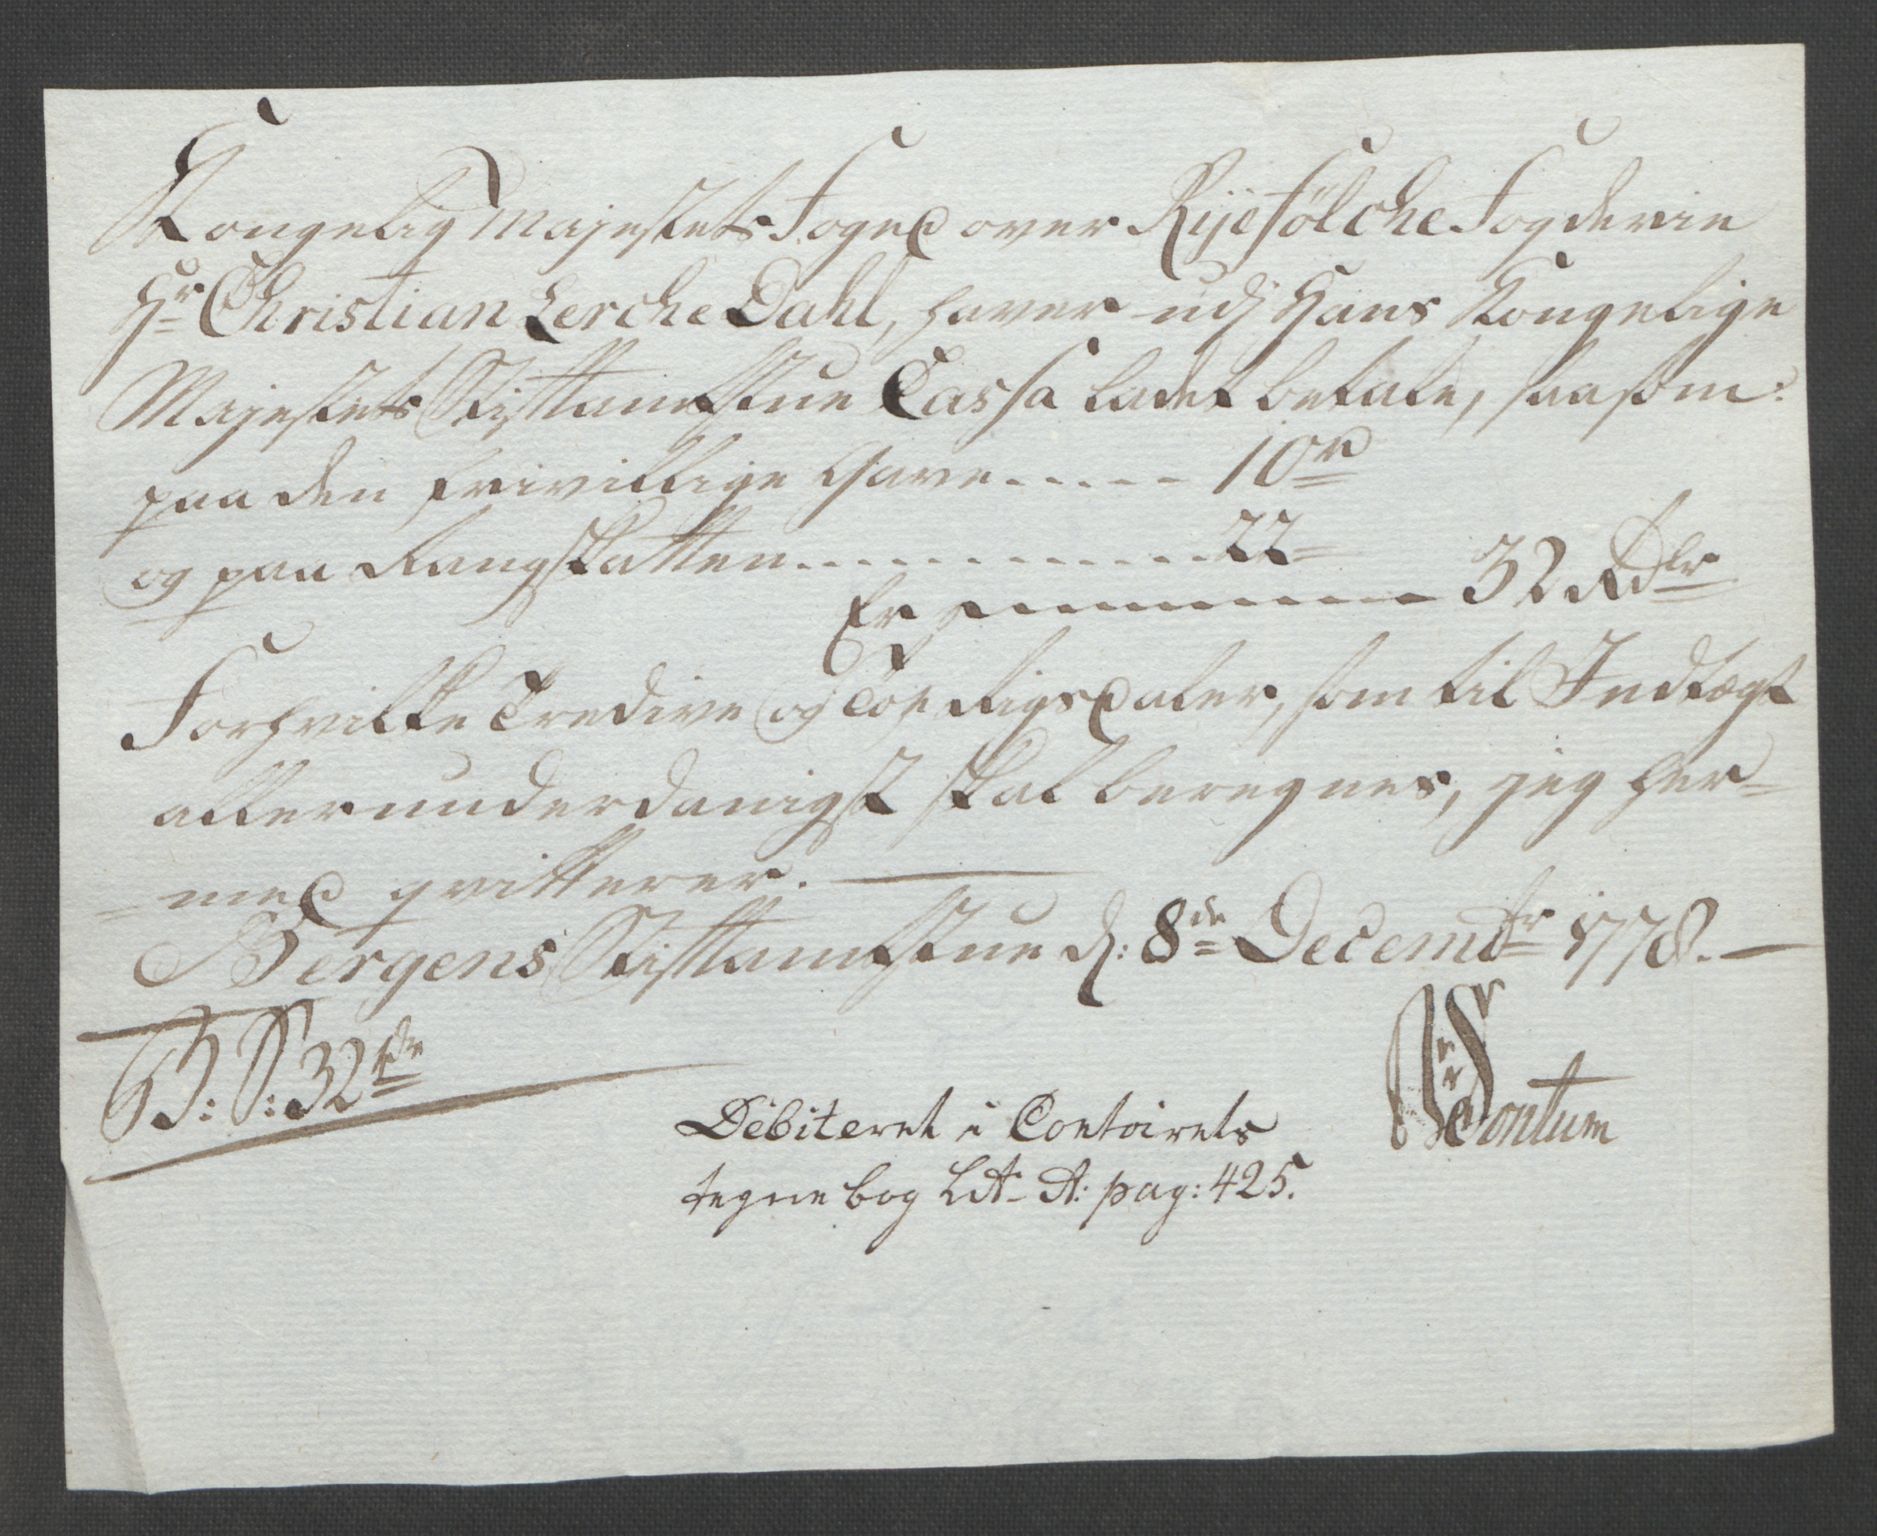 Kongelig Majestets Foged over Ryefølche Fogderie
Hr Christian Lerche Dahl, haver udj Hans Kongelige
Majestets Stiftamtstue Cassa ladet betale, saasom:
paa den frivillige Gave..... 10 rd
og paa Rangskatten............ 22 =
Er 32 Rdlr
Forhvilke Tredive og Toe Rigsdaler, som til Indtægt
allerunderdanigst skal beregnes, jeg her=
=med qvitterer.
Bergens Stiftamtstue d: 8de Decembr 1778.
32 rdr
Debiteret i Contoirets
tegnebog Lit A: pag: 425.
Sontum